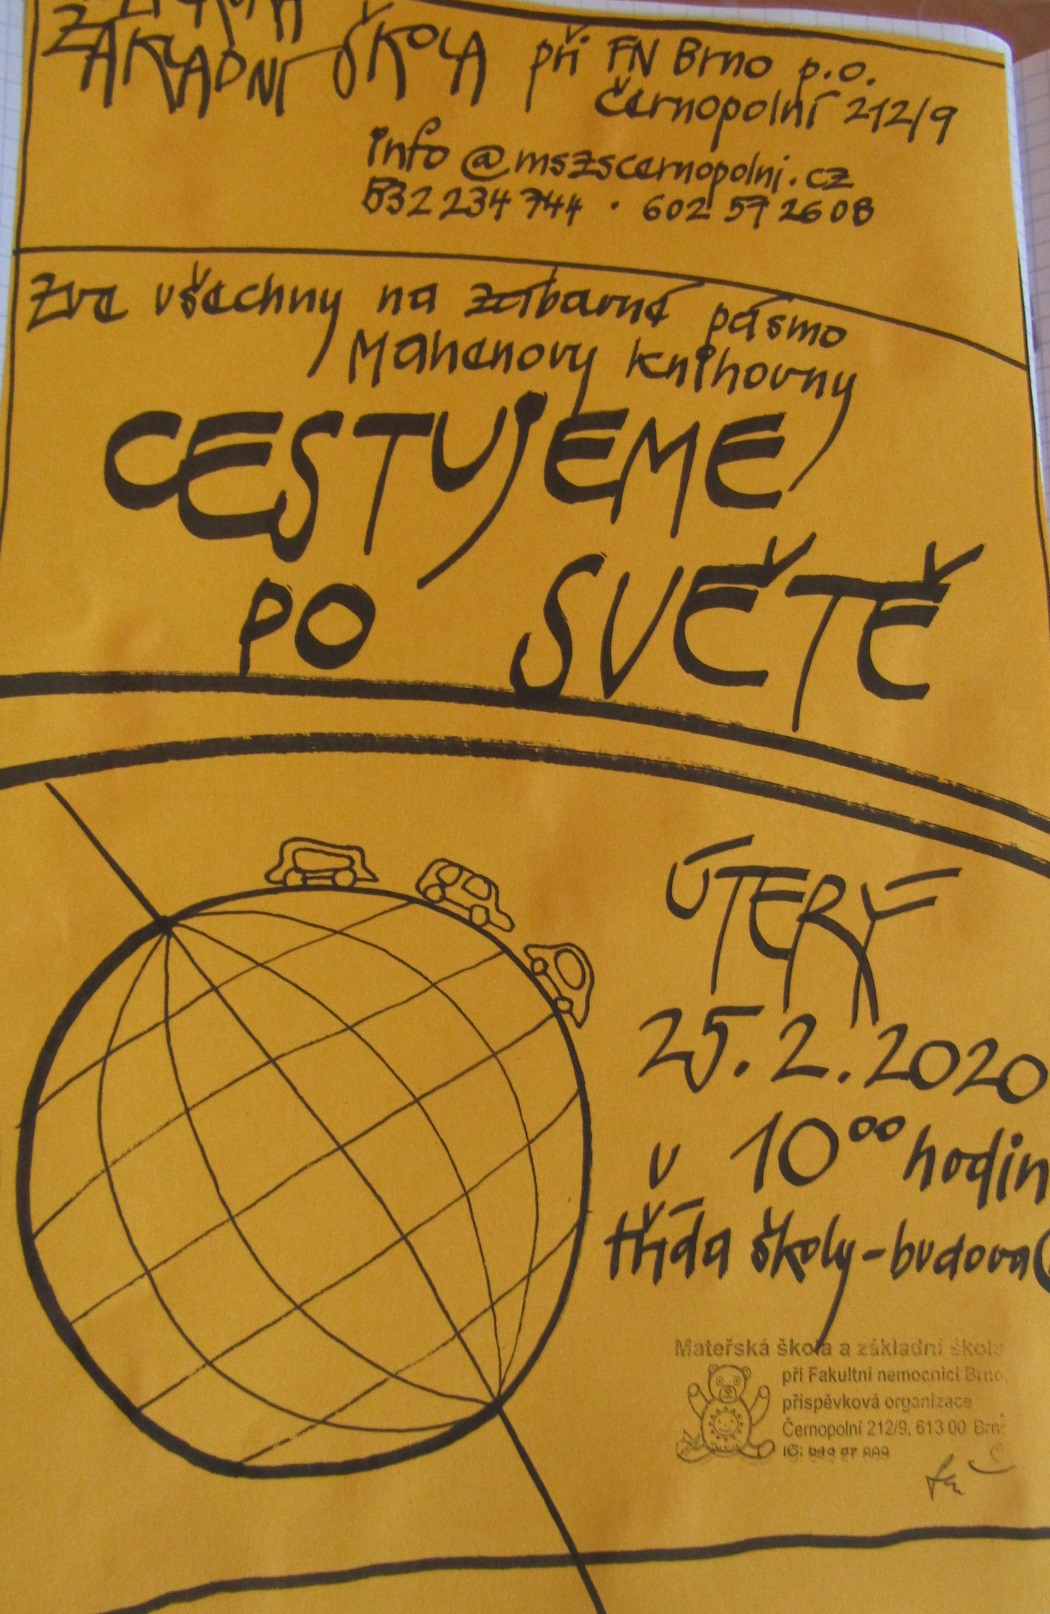 ZÁKLADNÍ ŠKOLA při FN Brno p.o.
Černopolní 212/9
info@mszscernopolni.cz
532 234 744 · 602 57 26 08
Zve všechny na zábavné pásmo
Mahenovy knihovny
CESTUJEME
PO SVĚTĚ
ÚTERÝ
25.2.2020
v 10⁰⁰ hodin
třída školy-budova
Mateřská škola a základní škola
při Fakultní nemocnici Brno,
příspěvková organizace
Černopolní 212/9, 613 00 Brno
IČ: